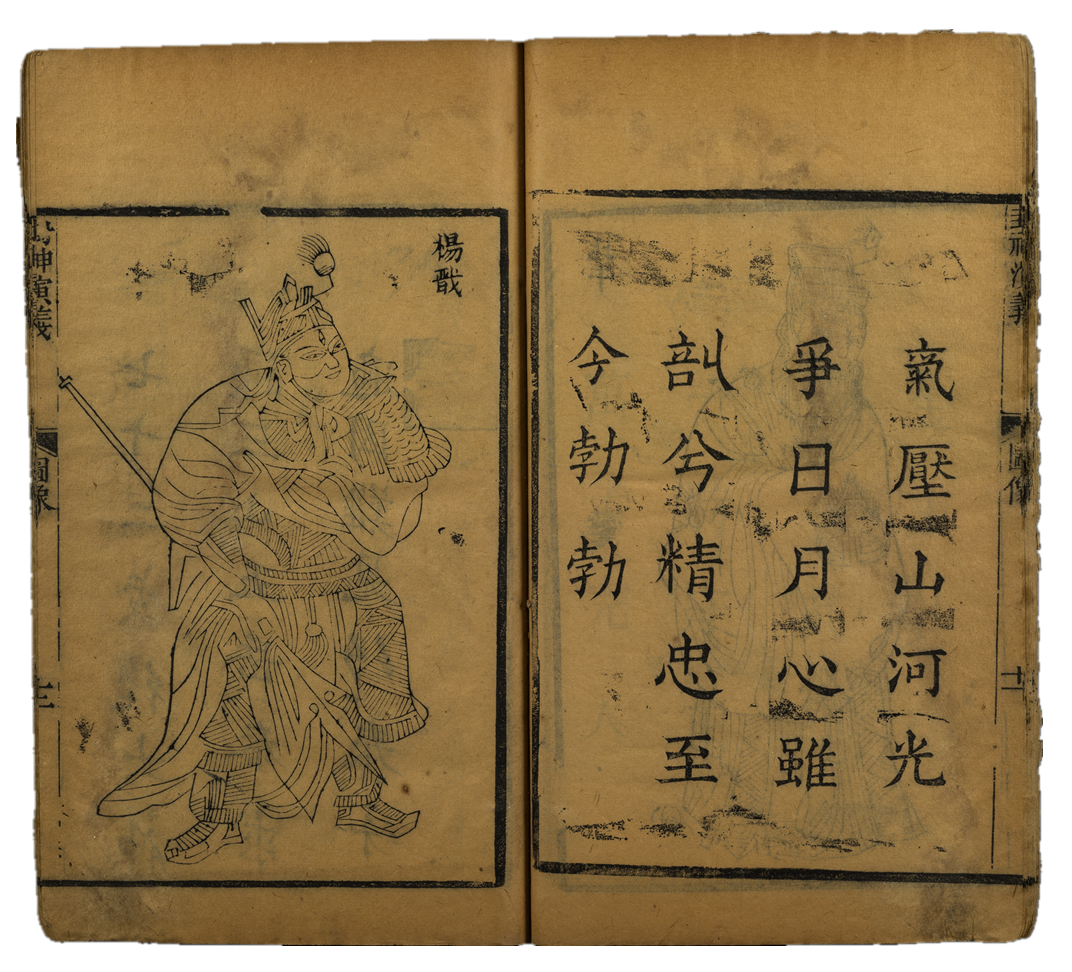 封神演義
圖像
十一
氣壓山河光
爭日月心雖
剖兮精忠至
今勃勃
楊戩
封神演義
圖像
十二